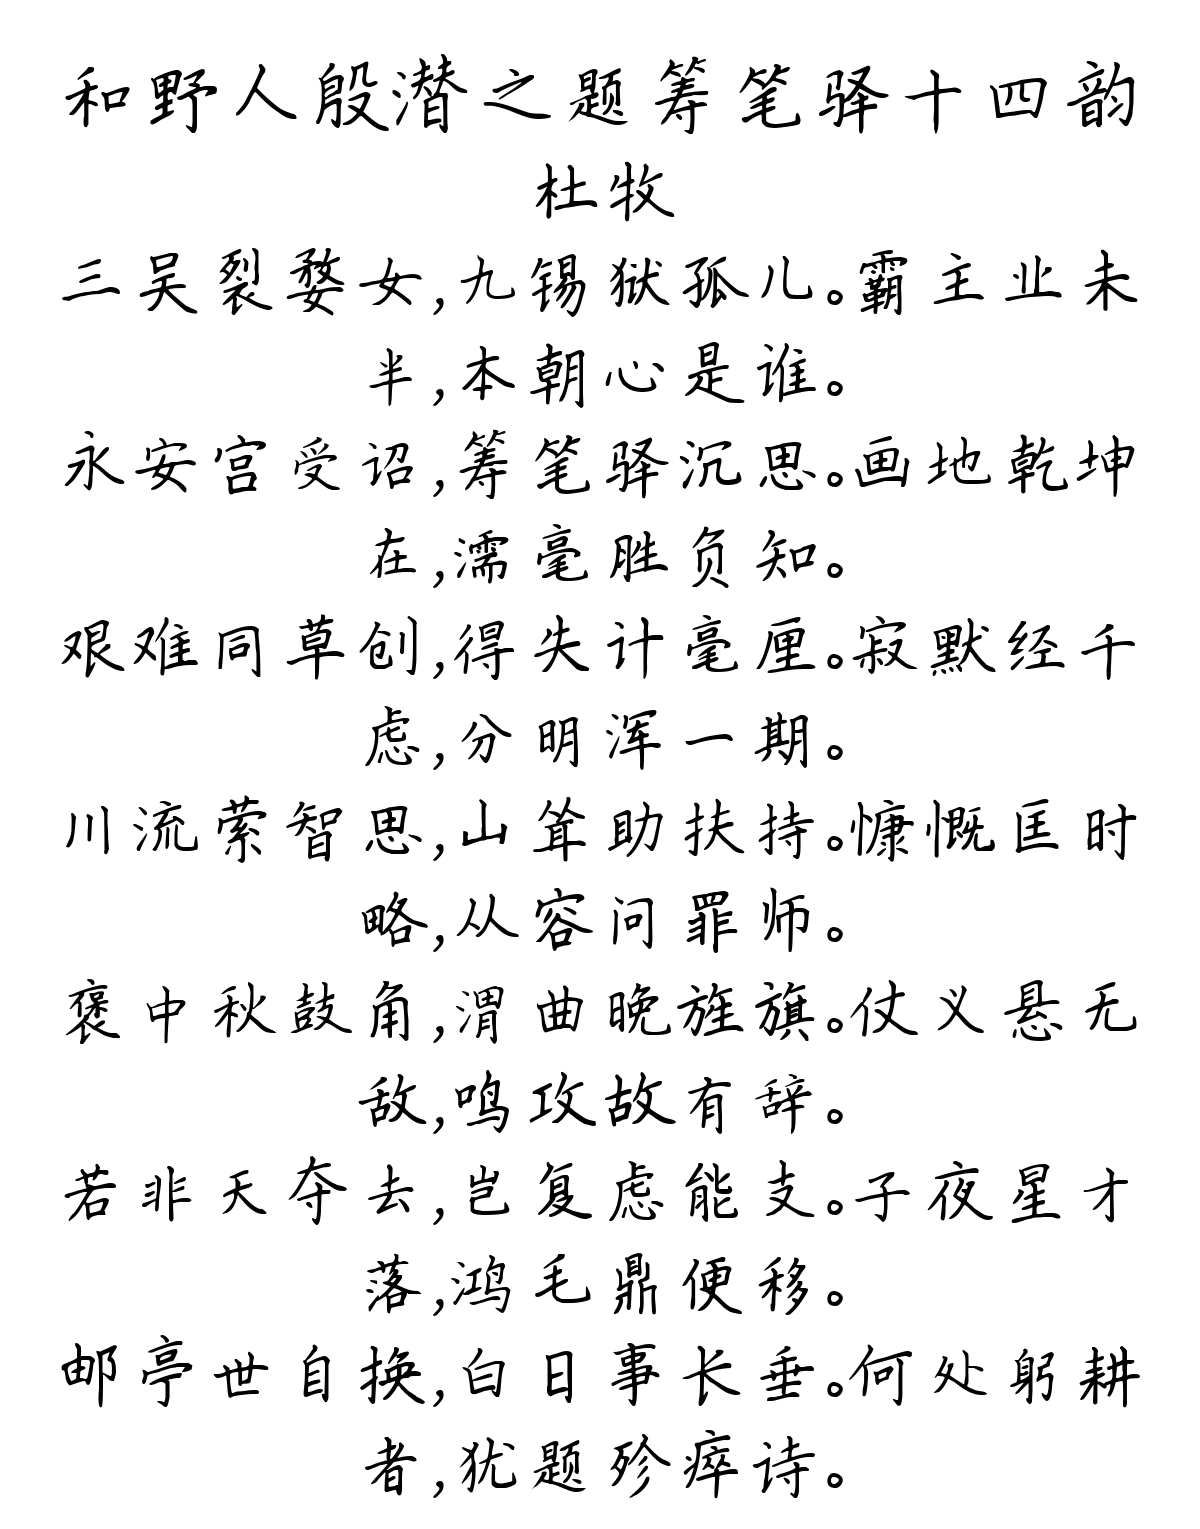 和野人殷潜之题筹笔驿十四韵
杜牧
三吴裂婺女,九锡狱孤儿。霸主业未
半,本朝心是谁。
永安宫受诏,筹笔驿沉思。画地乾坤
在,濡毫胜负知。
艰难同草创,得失计毫厘。寂默经千
虑,分明浑一期。
川流萦智思,山耸助扶持。慷慨匡时
略,从容问罪师。
褒中秋鼓角,渭曲晚旌旗。仗义悬无
敌,鸣攻故有辞。
若非天夺去,岂复虑能支。子夜星才
落,鸿毛鼎便移。
邮亭世自换,白日事长垂。何处躬耕
者,犹题殄瘁诗。